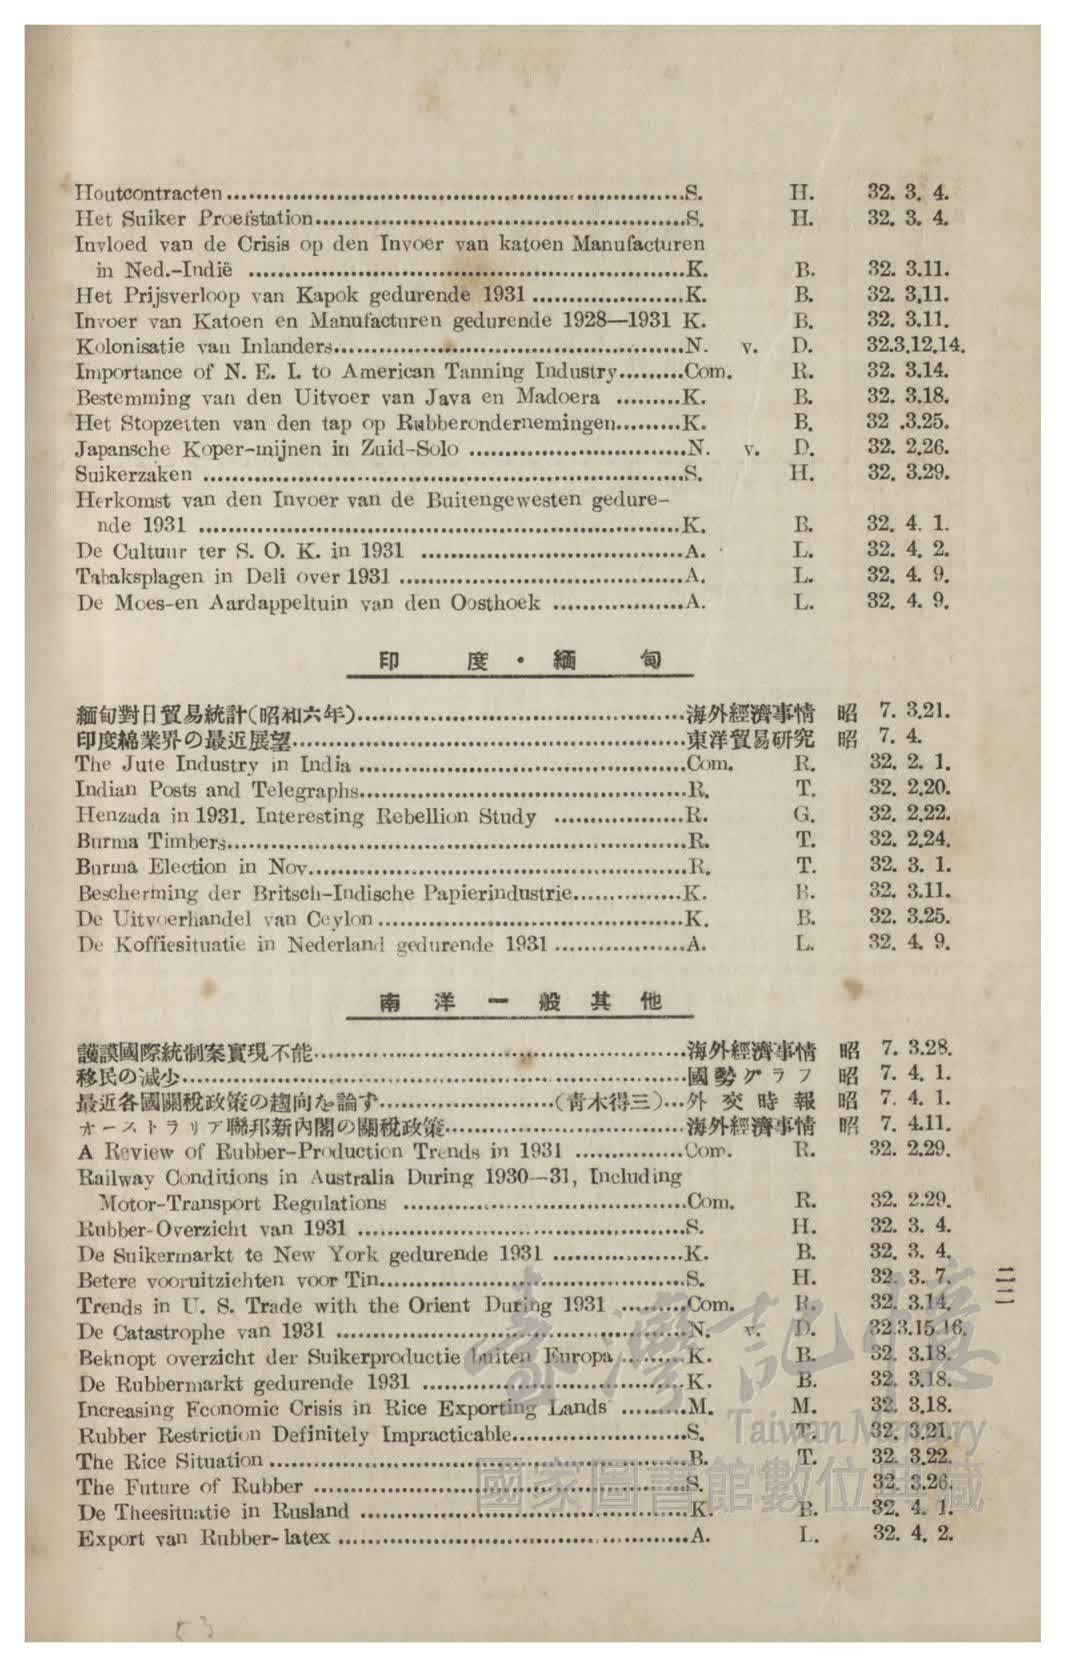 Houtcontracten ........ S. H. 32. 3. 4.
Het Suiker Proefstation ........ S. H. 32. 3. 4.
Invloed van de Crisis op den Invoer van katoen Manufacturen
in Ned.-Indië ........ K. B. 32. 3.11.
Het Prijsverloop van Kapok gedurende 1931 ........ K. B. 32. 3.11.
Invoer van Katoen en Manufacturen gedurende 1928—1931 K. B. 32. 3.11.
Kolonisatie van Inlanders ........ N. v. D. 32.3.12.14.
Importance of N. E. I. to American Tanning Industry ........ Com. R. 32. 3.14.
Bestemming van den Uitvoer van Java en Madoera ........ K. B. 32. 3.18.
Het Stopzetten van den tap op Rubberondernemingen ........ K. B. 32 .3.25.
Japansche Koper-mijnen in Zuid-Solo ........ N. v. D. 32. 2.26.
Suikerzaken ........ S. H. 32. 3.29.
Herkomst van den Invoer van de Buitengewesten gedure-
nde 1931 ........ K. B. 32. 4. 1.
De Cultuur ter S. O. K. in 1931 ........ A. L. 32. 4. 2.
Tabaksplagen in Deli over 1931 ........ A. L. 32. 4. 9.
De Moes-en Aardappeltuin van den Oosthoek ........ A. L. 32. 4. 9.
印度・緬甸
緬甸對日貿易統計(昭和六年) ........ 海外經濟事情 昭 7. 3.21.
印度綿業界の最近展望 ........ 東洋貿易研究 昭 7. 4.
The Jute Industry in India ........ Com. R. 32. 2. 1.
Indian Posts and Telegraphs ........ R. T. 32. 2.20.
Henzada in 1931. Interesting Rebellion Study ........ R. G. 32. 2.22.
Burma Timbers ........ R. T. 32. 2.24.
Burma Election in Nov. ........ R. T. 32. 3. 1.
Bescherming der Britsch-Indische Papierindustrie ........ K. B. 32. 3.11.
De Uitvoerhandel van Ceylon ........ K. B. 32. 3.25.
De Koffiesituatie in Nederland gedurende 1931 ........ A. L. 32. 4. 9.
南洋一般其他
護謨國際統制案實現不能 ........ 海外經濟事情 昭 7. 3.28.
移民の減少 ........ 國勢グラフ 昭 7. 4. 1.
最近各國關稅政策の趨向を論ず ........ (青木得三)... 外交時報 昭 7. 4. 1.
オーストラリア聯邦新內閣の關稅政策 ........ 海外經濟事情 昭 7. 4.11.
A Review of Rubber-Production Trends in 1931 ........ Com. R. 32. 2.29.
Railway Conditions in Australia During 1930—31, Including
Motor-Transport Regulations ........ Com. R. 32. 2.29.
Rubber-Overzicht van 1931 ........ S. H. 32. 3. 4.
De Suikermarkt te New York gedurende 1931 ........ K. B. 32. 3. 4.
Betere vooruitzichten voor Tin ........ S. H. 32. 3. 7.
二二
Trends in U. S. Trade with the Orient During 1931 ........ Com. R. 32. 3.14.
De Catastrophe van 1931 ........ N. v. D. 32.3.15.16.
Beknopt overzicht der Suikerproductie buiten Europa ........ K. B. 32. 3.18.
De Rubbermarkt gedurende 1931 ........ K. B. 32. 3.18.
Increasing Economic Crisis in Rice Exporting Lands ........ M. M. 32. 3.18.
Rubber Restriction Definitely Impracticable ........ S. T. 32. 3.21.
The Rice Situation ........ B. T. 32. 3.22.
The Future of Rubber ........ S. 32. 3.26.
De Theesituatie in Rusland ........ K. B. 32. 4. 1.
Export van Rubber-latex ........ A. L. 32. 4. 2.
臺灣記憶
Taiwan Memory
國家圖書館數位典藏
53